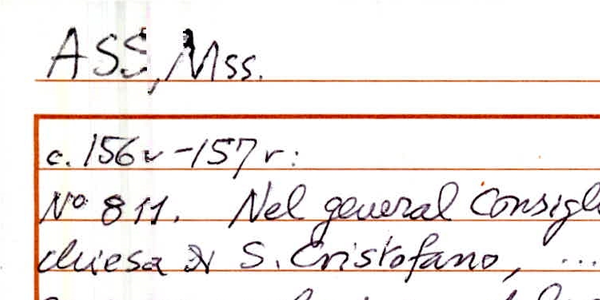 ASS, Mss.
c. 156v-157r:
N° 811. Nel general Consigl
chiesa di S. Cristofano, ...